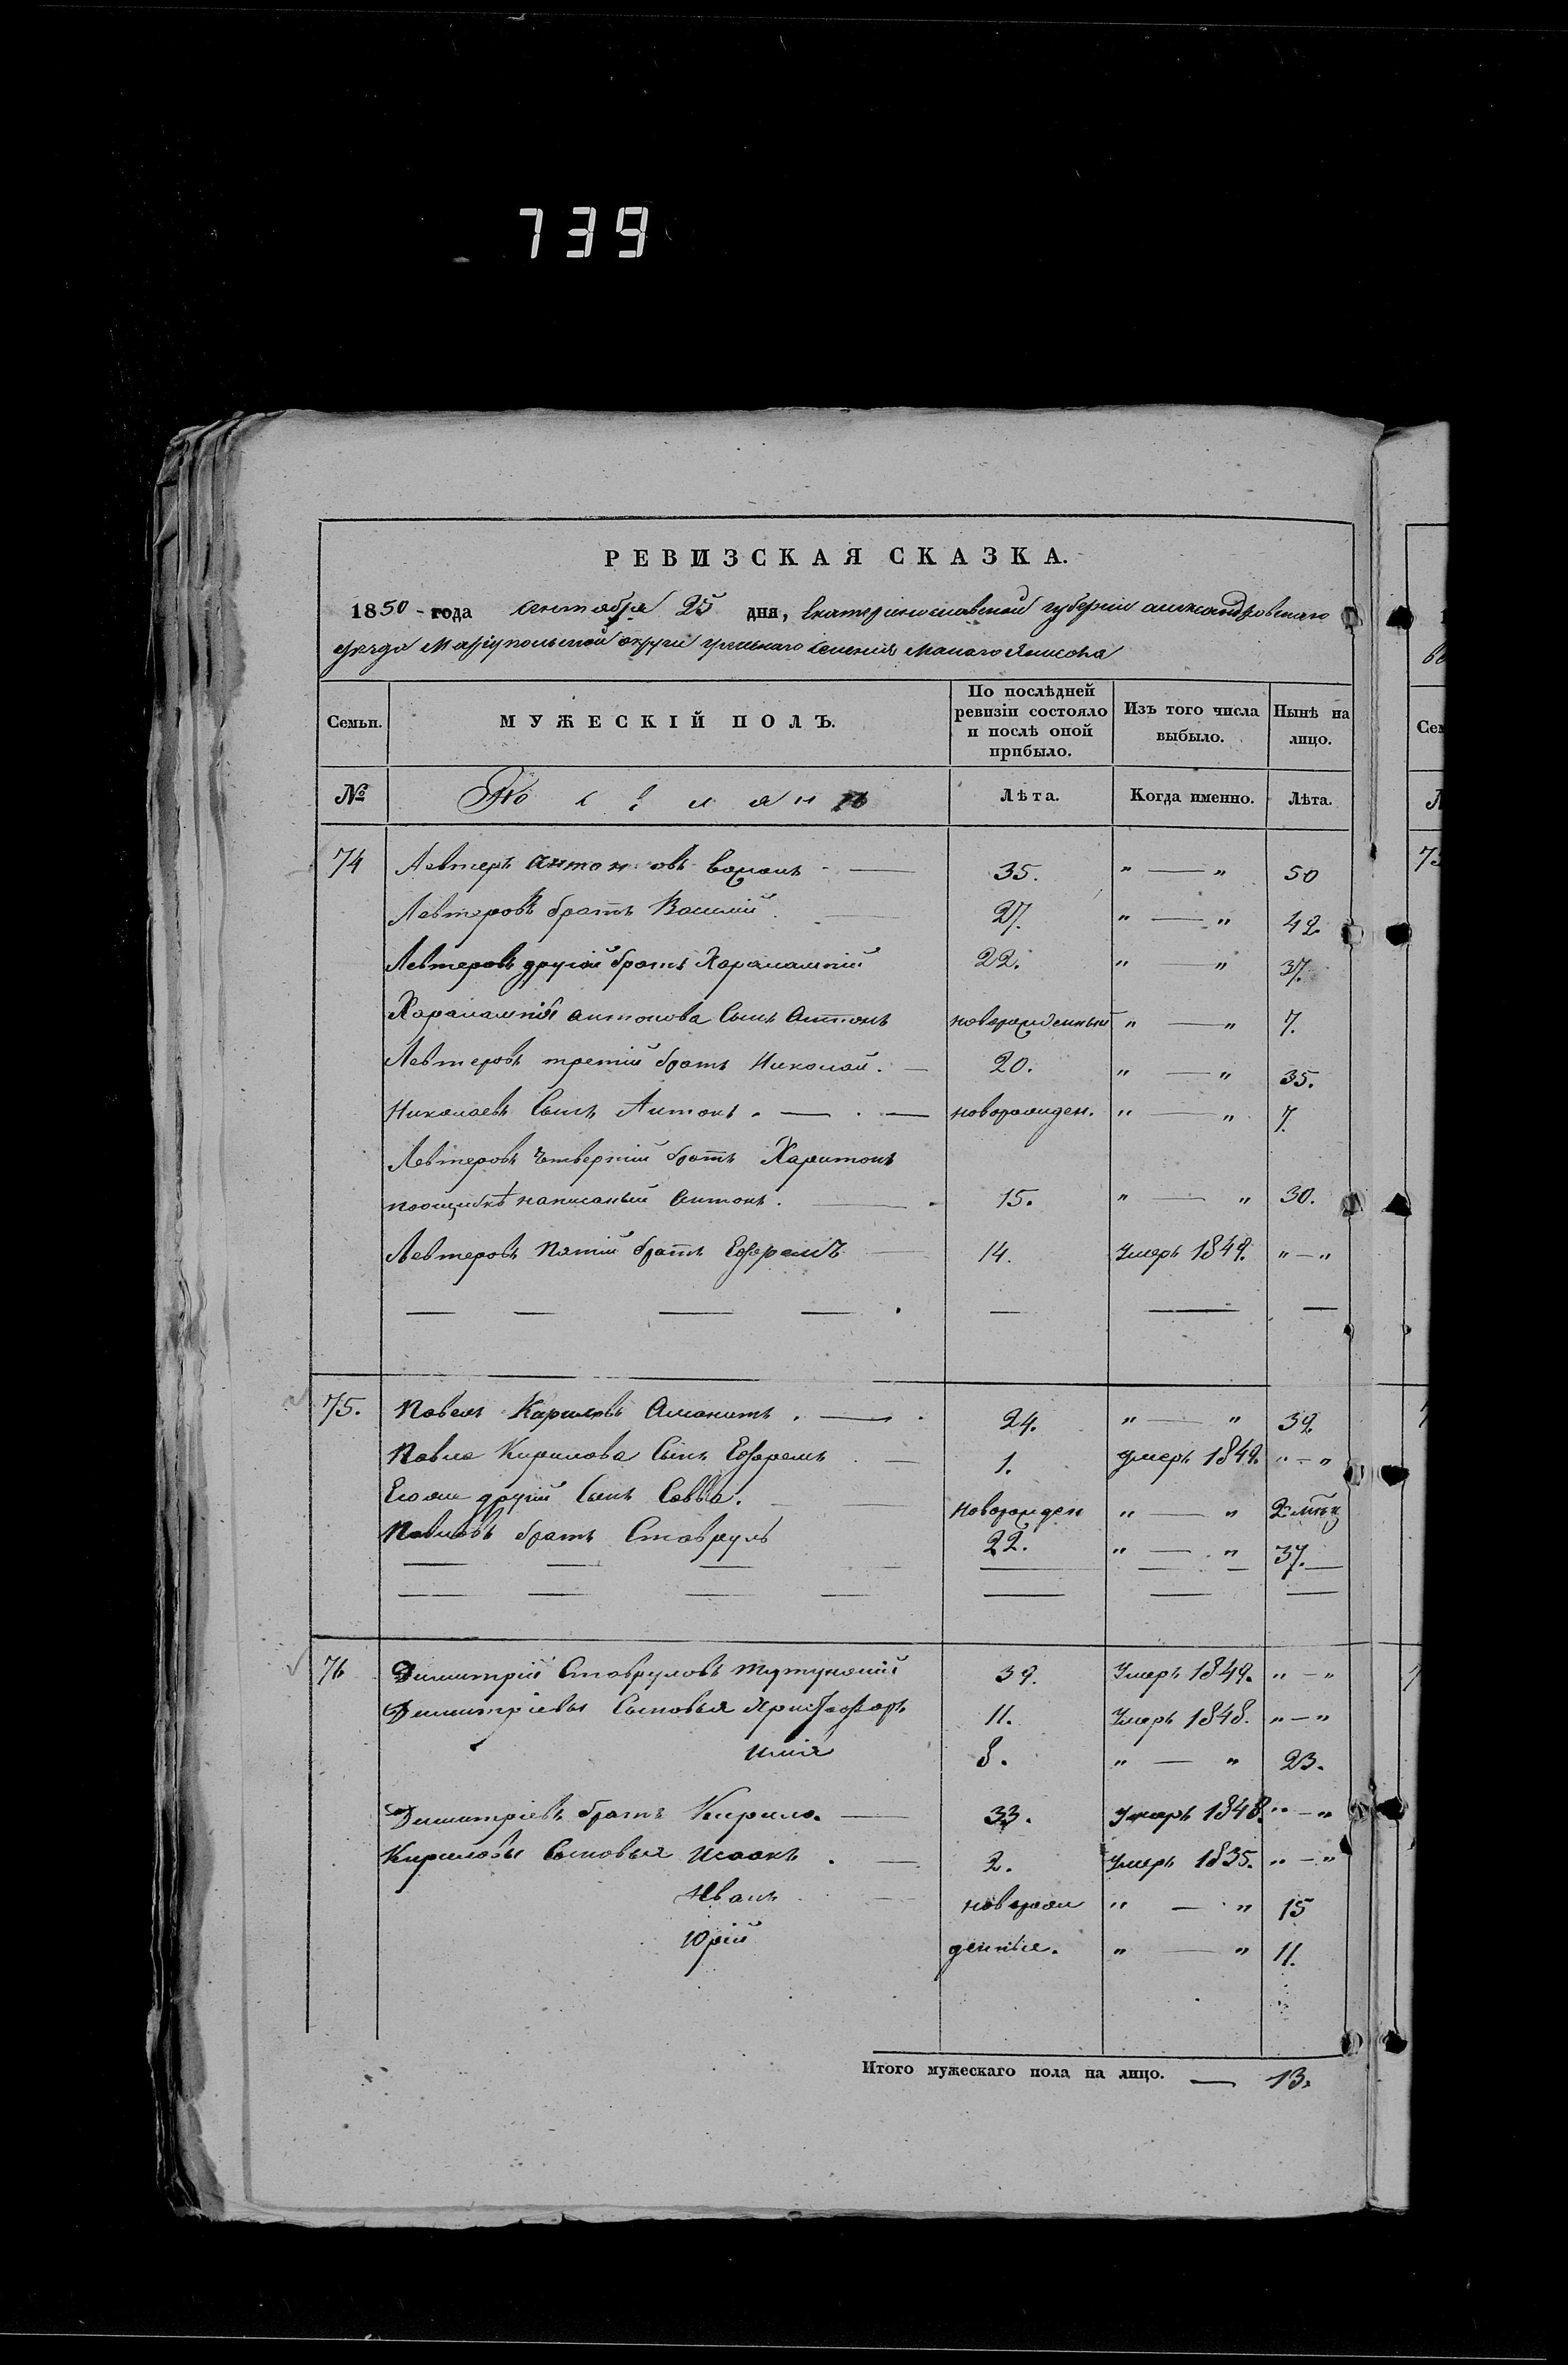 739
РЕВИЗСКАЯ СКАЗКА.
1850 - года сентября 25 дня, Екатеринославской губернии александровскаго
уезда Маріупольской округи греческаго селения Малаго Янисоля
Семьи. МУЖЕСКІЙ ПОЛЪ. По послѣдней ревизіи состояло и послѣ оной прибыло. Изъ того числа выбыло. Нынѣ на лицо.
№ Лѣта. Когда именно. Лѣта.
74 Левтеръ антоновъ — 35. " — " 50
Левтеровъ братъ Василій 27. " — " 42
Левтеровъ другой братъ Харалампій 22. " — " 37.
Харалампія антонова сынъ антонъ новорожденный " — " 7.
Левтеровъ третій братъ Николай. — 20. " — " 35.
Николаевъ сынъ Антонъ. — . — новорожден. " — " 7.
Левтеровъ четвертій братъ Харитонъ
поошибкѣ написаный антонъ. — 15. " — " 30.
Левтеровъ пятій братъ Ефремъ — 14. Умеръ 1849. " — "
75. Павелъ Кириловъ — 24. " — " 39.
Павла Кирилова сынъ Ефремъ — 1. умеръ 1849. " — "
Егоже другій сынъ Савва. новорожден " — "
Павловъ братъ Ставрулъ 22. " — " 37.
76 Димитрій Ставруловъ 39. Умеръ 1849. " — "
Димитріевы сыновья Христофоръ 11. Умеръ 1848. " — "
Илія 8. " — " 23.
Димитріевъ братъ Кирило. — 33. Умеръ 1848. " — "
Кириловы сыновья Исаакъ . — 2. Умеръ 1835. " — "
Иванъ новорож " — " 15
Юрій денные. " — " 11.
Итого мужескаго пола на лицо. — 13.